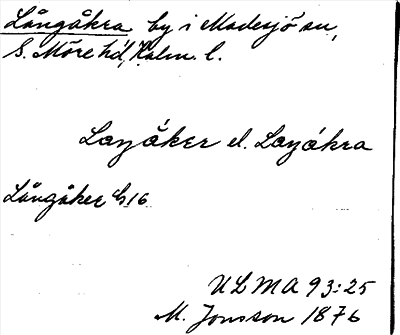 Långåkra by i Madesjö sn,
S. Möre hd, Kalm. l.
Laŋåker el. Laŋåkra
Långåker
ULMA 93:25
M. Jonsson 1876